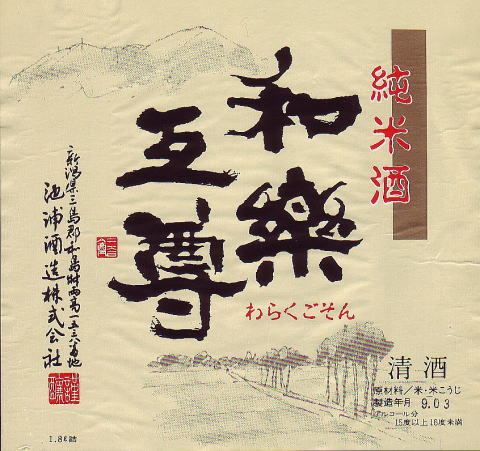 純米酒
和樂
互尊
わらくごそん
新潟県三島郡和島村両高一五三八番地
池浦酒造株式会社
謹醸
清酒
原材料/米・米こうじ
製造年月 9.03
アルコール分
15度以上16度未満
1.8ℓ詰